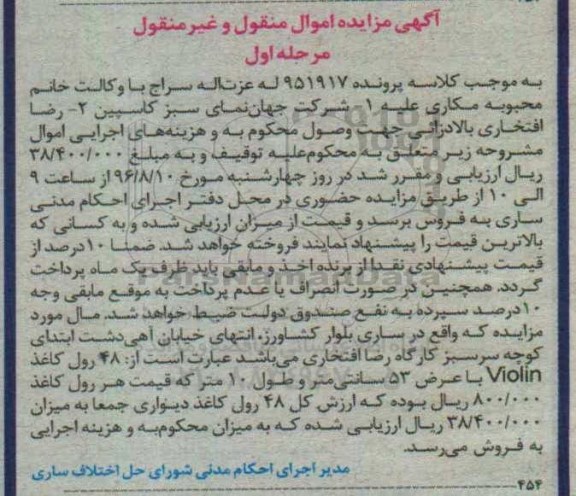 آگهی مزایده اموال منقول و غیر منقول
مرحله اول
به موجب کلاسه پرونده ۹۵۱۹۱۷ له عزت‌اله سراج با وکالت خانم
محبوبه مکاری علیه ۱- شرکت جهان‌نمای سبز کاسپین ۲- رضا
افتخاری بالادزائی جهت وصول محکوم به و هزینه‌های اجرایی اموال
مشروحه زیر متعلق به محکوم‌علیه توقیف و به مبلغ ۳۸/۴۰۰/۰۰۰
ریال ارزیابی و مقرر شد در روز چهارشنبه مورخ ۹۶/۸/۱۰ از ساعت ۹
الی ۱۰ از طریق مزایده حضوری در محل دفتر اجرای احکام مدنی
ساری به فروش برسد و قیمت از میزان ارزیابی شده و به کسانی که
بالاترین قیمت را پیشنهاد نمایند فروخته خواهد شد. ضمنا ۱۰درصد از
قیمت پیشنهادی نقدا از برنده اخذ و مابقی باید ظرف یک ماه پرداخت
گردد. همچنین در صورت انصراف یا عدم پرداخت به موقع مابقی وجه
۱۰درصد سپرده به نفع صندوق دولت ضبط خواهد شد. مال مورد
مزایده که واقع در ساری بلوار کشاورز، انتهای خیابان آهی‌دشت ابتدای
کوچه سرسبز کارگاه رضا افتخاری می‌باشد عبارت است از: ۴۸ رول کاغذ
Violin با عرض ۵۳ سانتی‌متر و طول ۱۰ متر که قیمت هر رول کاغذ
۸۰۰/۰۰۰ ریال بوده که ارزش کل ۴۸ رول کاغذ دیواری جمعا به میزان
۳۸/۴۰۰/۰۰۰ ریال ارزیابی شده که به میزان محکوم‌به و هزینه اجرایی
به فروش می‌رسد.
مدیر اجرای احکام مدنی شورای حل اختلاف ساری
۴۵۴